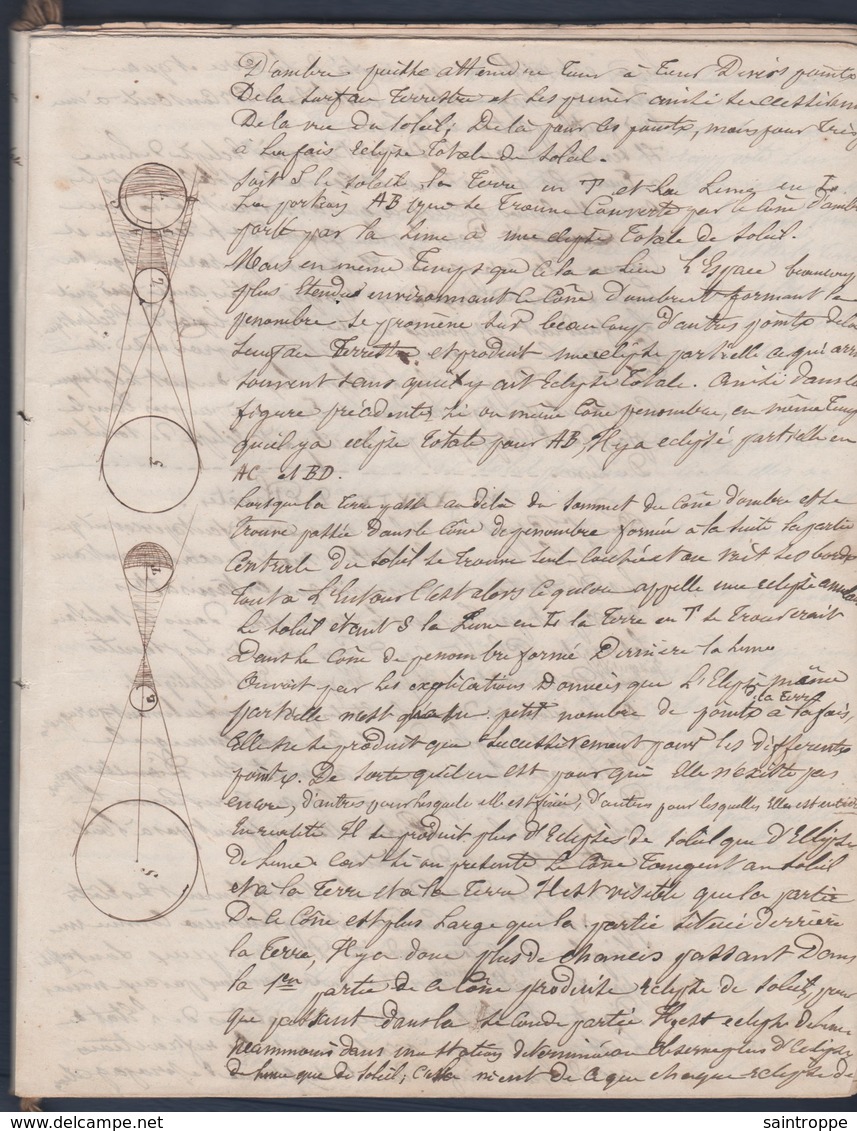 D'ombre puisse attendre tour à tour Divers points
De la surface Terrestre et les priver ainsi successivem
De la vue du Soleil; De là pour les points, mais pour
à la fois Eclipse Totale de Soleil.
Soit S le soleil la Terre en T et la Lune en L
La portion AB que se Trouve Couverte par le Cône d'omb
porté par la Lune à une eclipse Totale de Soleil.
Mais en même Temps que cela a lieu l'Espace beaucoup
plus Etendue environnant le Cône d'ombre et formant la
penombre se promène sur beaucoup d'autres points de la
surface Terrestre et produit une eclipse partielle ce qui arr
souvent sans qu'il y ait Eclipse Totale. Ainsi dans la
figure précédente, si on mène Cône penombre, en même Temps
qu'il y a eclipse totale pour AB, Il y a eclipse partielle en
AC et BD.
Lorsque la Terre passe au delà du Sommet du Cône d'ombre et se
Trouve passée dans le Cône de penombre formée à la suite la partie
Centrale du soleil se Trouve seule cachée et on voit ses bords
Tout à l'Entour C'est alors ce qu'on appelle une eclipse annulai
Le Soleil etant S la Lune en L la Terre en T se Trouverait
Dans le Cône de penombre formé Derrière la Lune
On voit par les explications Données que L'Eclipse même
partielle n'est que petit nombre de points à la fois,
la Terre
Elle ne se produit que successivement pour les différents
points. De sorte qu'il en est pour qui Elle n'existe pas
encore, d'autres pour lesquels elle est finie, d'autres pour lesquelles Elle est entière
En realité Il se produit plus d'Eclipses de Soleil que d'Ellipse
de Lune. Car si on présente le Cône Tangent au Soleil
et à la Terre et à la Terre Il est visible que la partie
De ce Cône est plus Large que la partie située derrière
la Terre, Il y a donc plus de chances passant Dans
la 1ère partie de ce Cône produise eclipse de Soleil, pour
que passant dans la seconde partie Il y est eclipse de Lune
néammoins dans une station déterminée on Observe plus d'Eclipse
de Lune que de Soleil; Cela vient de ce que chaque eclipse de
S
T
L
A
B
C
D
S
T
L
saintroppe